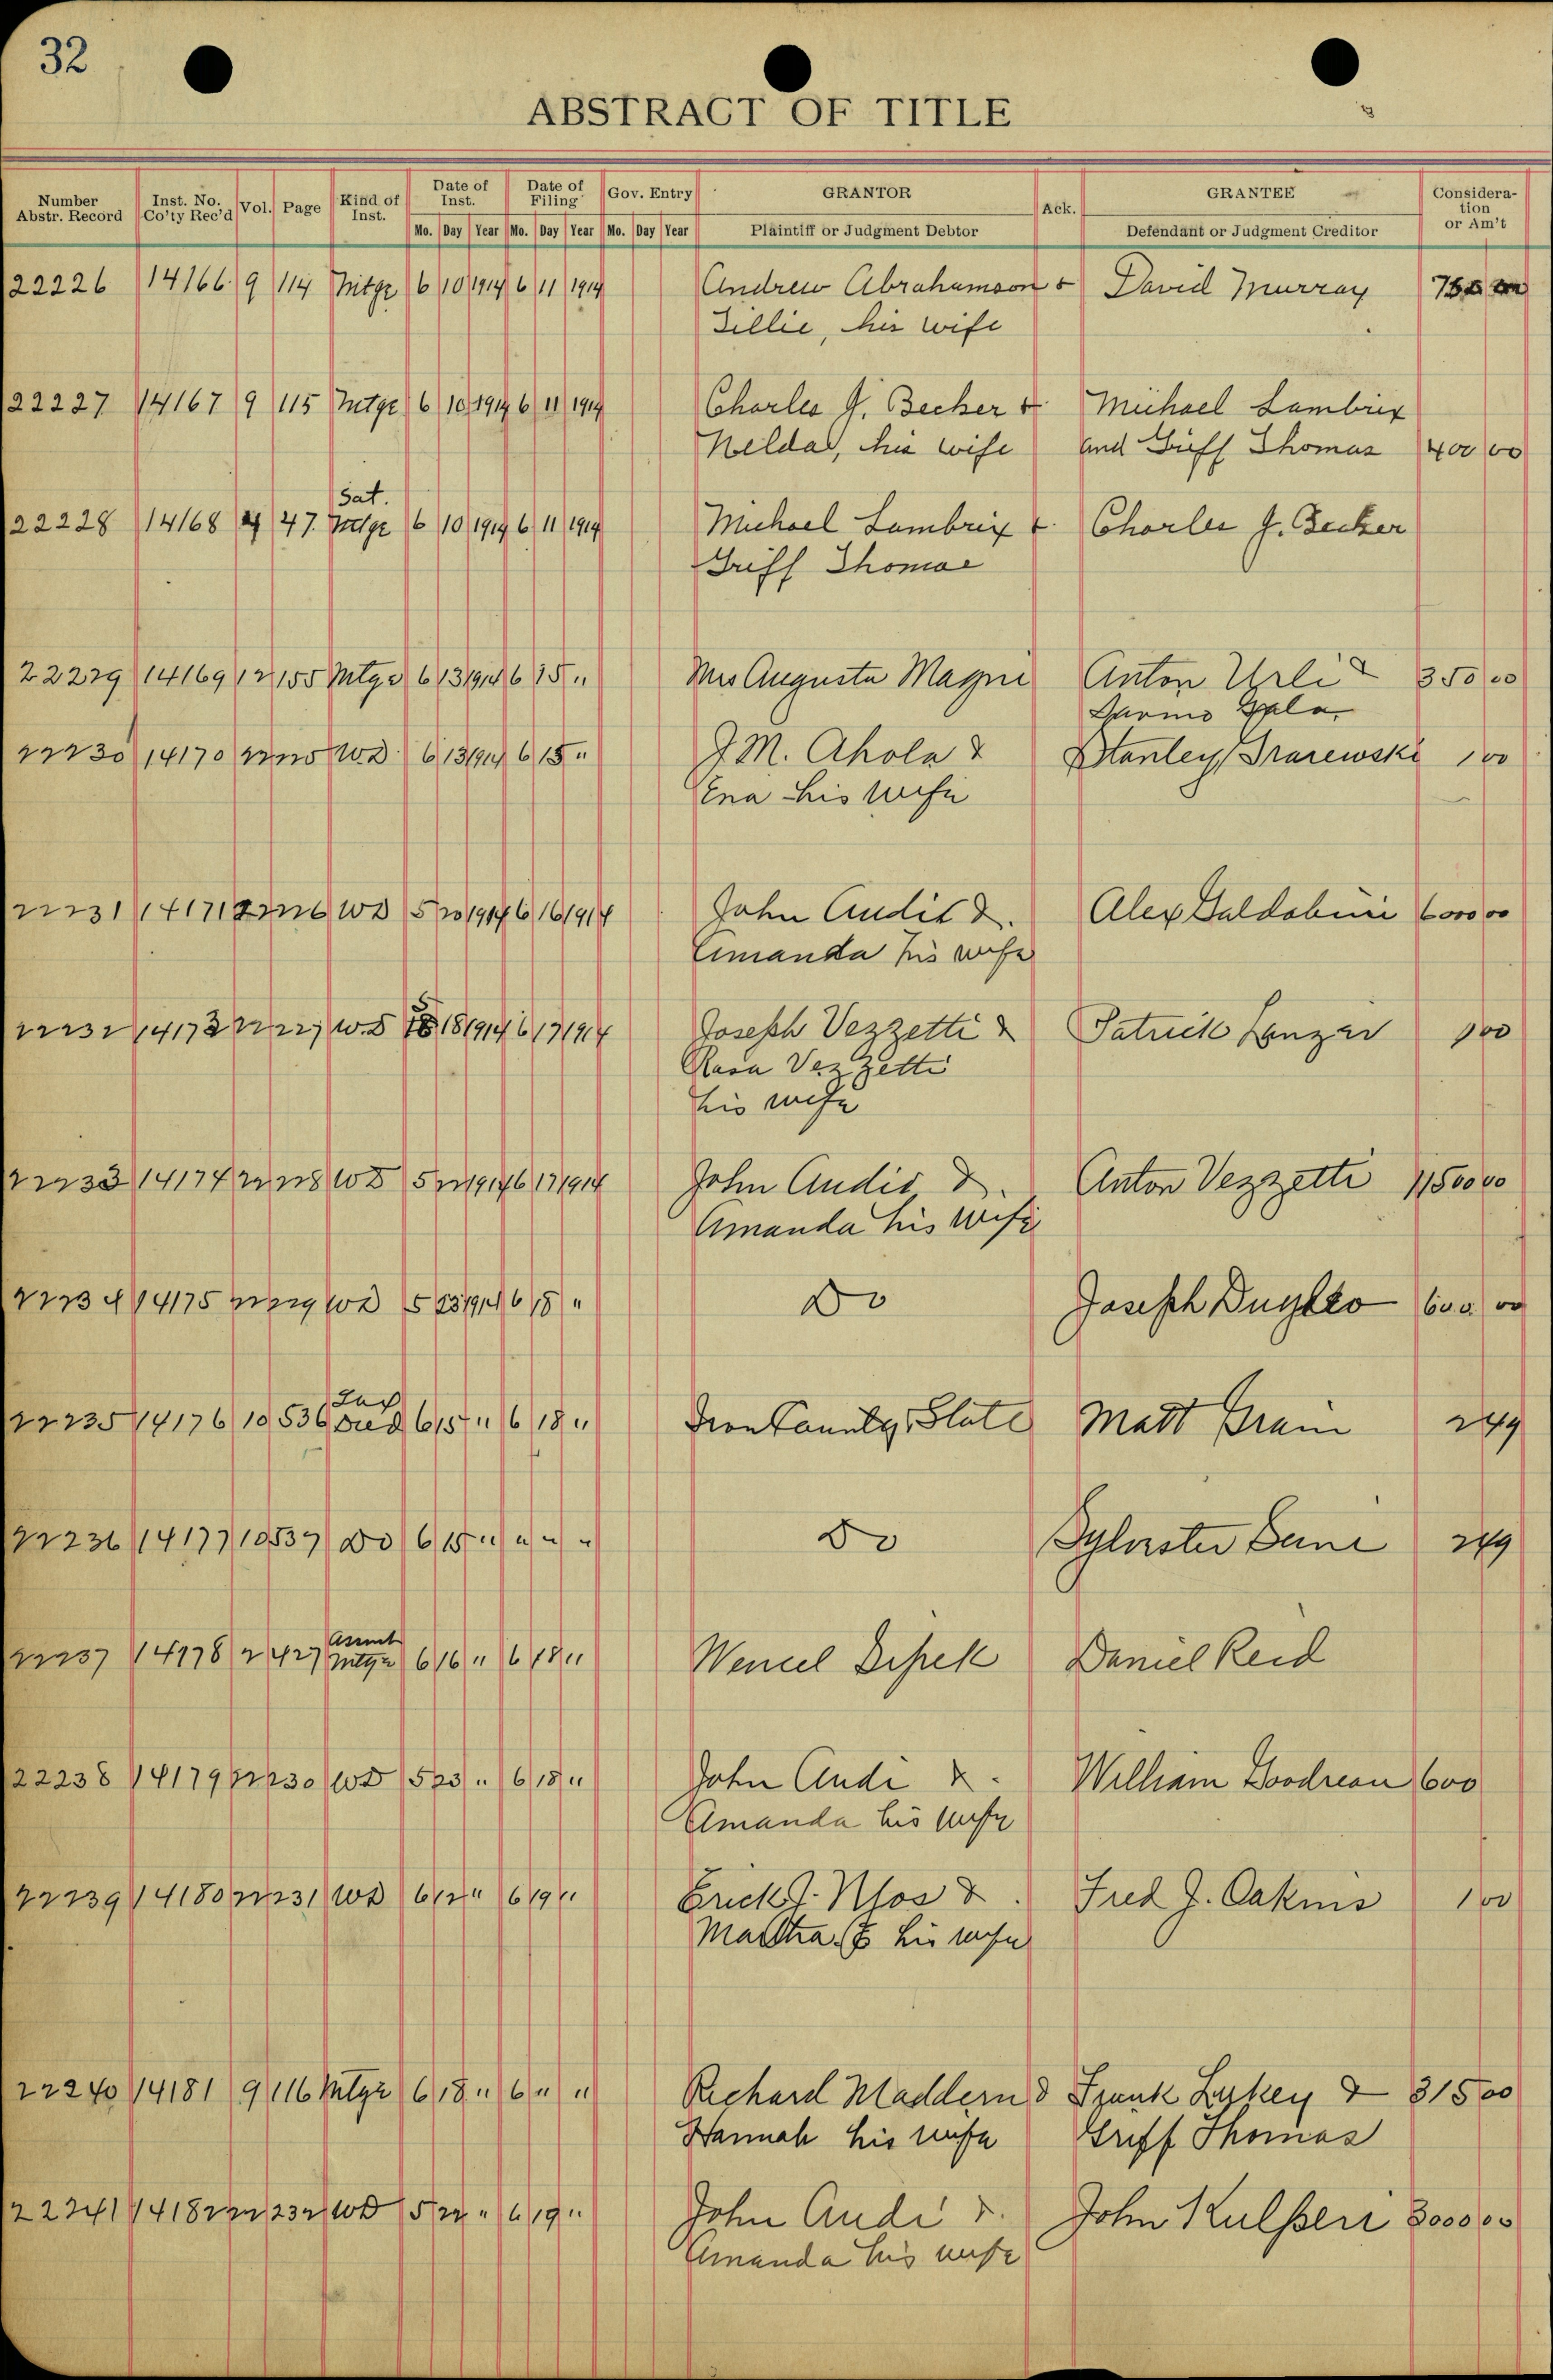 32
ABSTRACT OF TITLE
Number Abstr. Record Inst. No. Co'ty Rec'd Vol. Page Kind of Inst. Date of Inst. Date of Filing Gov. Entry GRANTOR Ack. GRANTEE Considera-tion or Am't
Mo. Day Year Mo. Day Year Mo. Day Year Plaintiff or Judgment Debtor Defendant or Judgment Creditor
22226 14166 9 114 Mtge 6 10 1914 6 11 1914 Andrew Abrahamson & David Murray
Tillie, his wife
22227 14167 9 115 Mtge 6 10 1914 6 11 1914 Charles J. Becker & Michael Lambrix
Nelda, his wife and Griff Thomas 400 00
Sat.
22228 14168 4 47 Mtge 6 10 1914 6 11 1914 Michael Lambrix & Charles J. Becker
Griff Thomas
22229 14169 12 155 Mtge 6 13 1914 6 15 " Mrs Augusta Magni Anton Urli & 350 00
22230 14170 22 225 W.D. 6 13 1914 6 15 " J.M. Ahola & Stanley 1 00
Ena his wife
22231 14171 22 226 WD 5 20 1914 6 16 1914 John Audit & Alex Galdabini 6000 00
Amanda his wife
22232 14173 22 227 W.D 5 18 1914 6 17 1914 Joseph Vezzetti & Patrick Lenzer 1 00
Rasa Vezzetti
his wife
22233 14174 22 228 WD 5 22 1914 6 17 1914 John Audis & Anton Vezzetti 11500 00
Amanda his wife
22234 14175 22 229 WD 5 23 1914 6 18 " Do Joseph 600 00
Tax
22235 14176 10 536 Deed 6 15 " 6 18 " Iron County, State Matt 2 49
22236 14177 10 537 Do 6 15 " " " " Do Sylvester 2 49
Assmt
22237 14178 2 427 Mtge 6 16 " 6 18 " Wencel Daniel Reid
22238 14179 22 230 WD 5 23 " 6 18 " John Audi & William Goodreau 600
Amanda his wife
22239 14180 22 231 WD 6 12 " 6 19 " Erick J. & Fred J. Oakins 1 00
Martha his wife
22240 14181 9 116 Mtge 6 18 " 6 " " Richard Maddern & Frank Luxkey & 315 00
Hannah his wife Griff Thomas
22241 14182 22 232 WD 5 22 " 6 19 " John Audi & John 3000 00
Amanda his wife